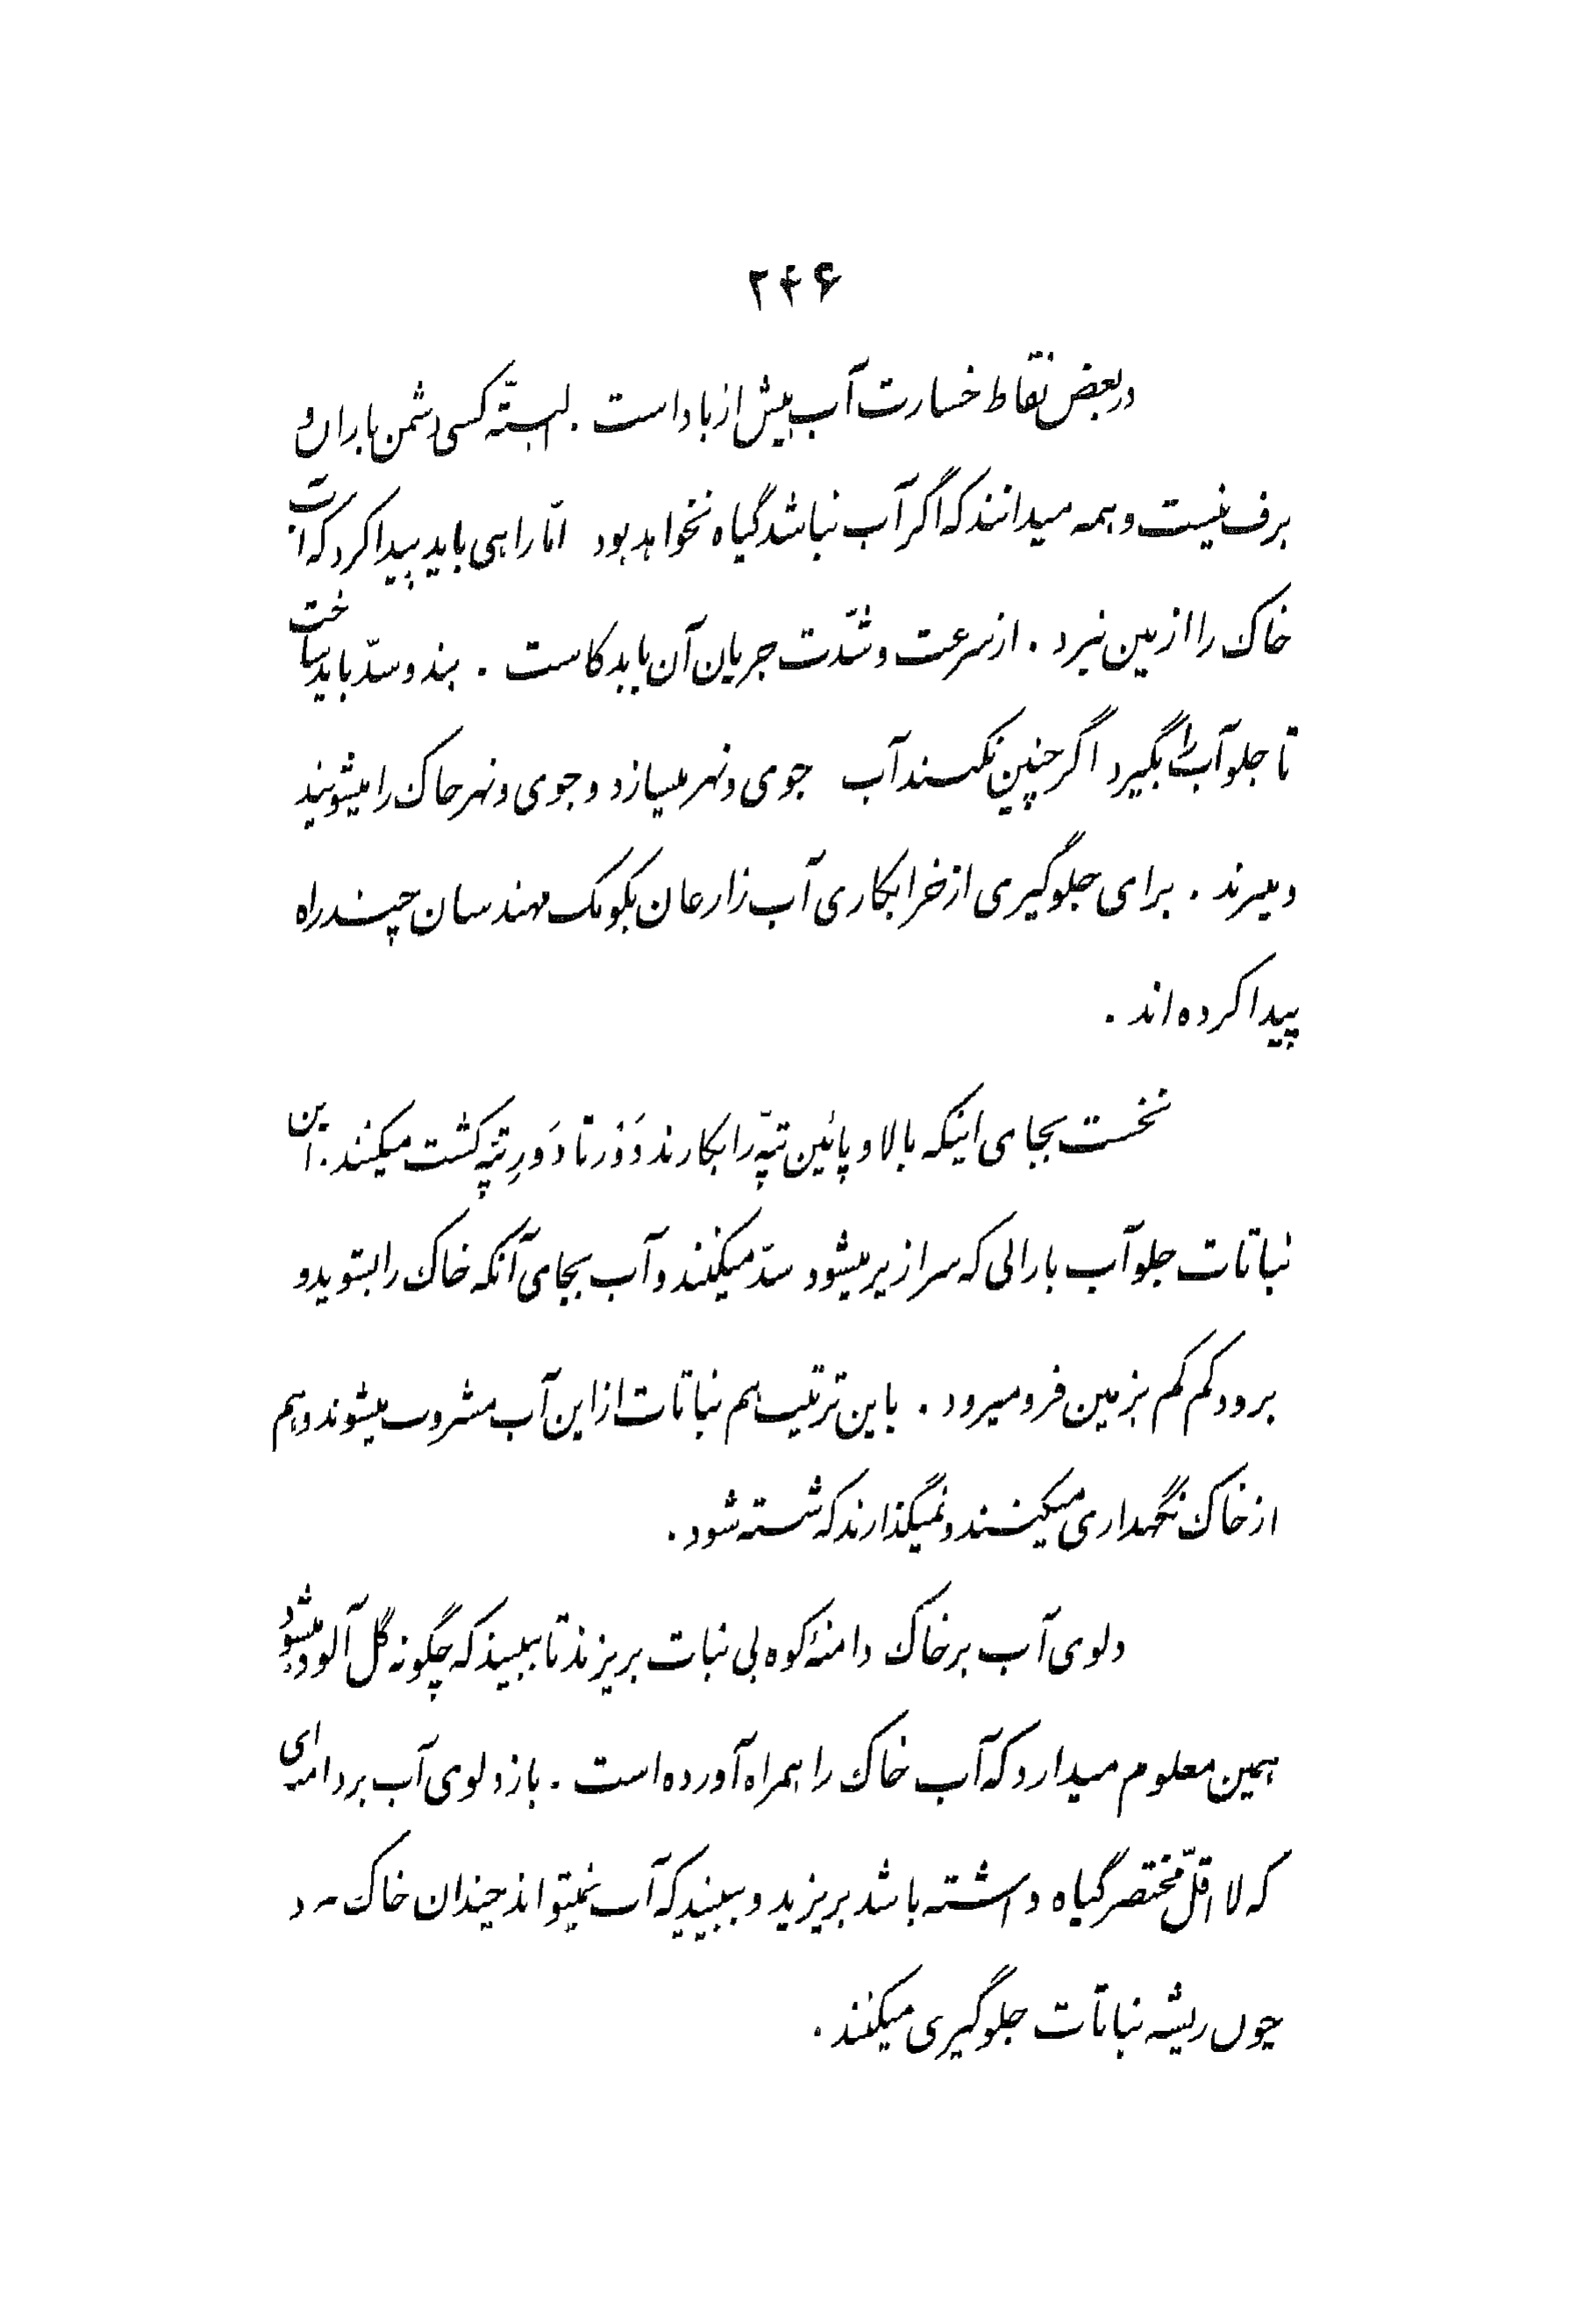 ۲۴۶
در بعض نقاط خسارت آب بیش از باد است . البتّه کسی دشمن باران و
برف نیست و همه میدانند که اگر آب نباشد گیاه نخواهد بود امّا راهی باید پیدا کرد که آب
خاک را از بین نبرد . از سرعت و شدّت جریان آن باید کاست . بند و سدّ باید ساخت
تا جلو آب را بگیرد اگر چنین نکنند آب جوی و نهر میسازد و جوی و نهر خاک را میشویند
و میبرند . برای جلوگیری از خرابکاری آب زارعان بکومک مهندسان چند راه
پیدا کرده‌اند .
نخست بجای اینکه بالا و پائین تپّه را بکارند دَوْر تا دَورِ تپّه کشت میکنند . این
نباتات جلو آب بارانی که سرازیر میشود سدّ میکنند و آب بجای آنکه خاک را بشوید و
برود کم کم بزمین فرو میرود . باین ترتیب هم نباتات از این آب مشروب میشوند و هم
از خاک نگهداری میکنند و نمیگذارند که شسته شود .
دلوی آب بر خاک دامنۀ کوه بی نبات بریزند تا ببینید که چگونه گل آلود میشود
همین معلوم میدارد که آب خاک را همراه آورده است . باز دلوی آب بر دامنه‌ای
که لااقلّ مختصر گیاه داشته باشد بریزید و ببینید که آب نمیتواند چندان خاک
چون ریشه نباتات جلوگیری میکنند .